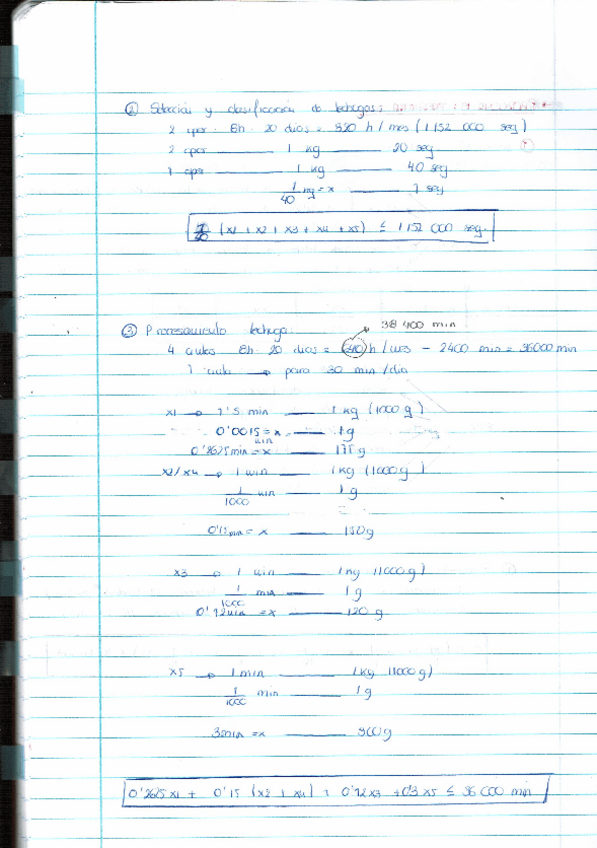 ② Selección y clasificación de lechugas:
2 oper. 8h. 20 días = 320 h / mes (1.152 000 seg)
2 oper ——— 1 kg ——— 20 seg
1 oper ——— 1 kg ——— 40 seg
1/40 kg = x ——— 1 seg
(x1 + x2 + x3 + x4 + x5) ≤ 1152 000 seg.
38 400 min
③ Procesamiento lechuga:
4 8h 20 días = 640 h / mes - 2400 min = 36000 min
1 → para 30 min / día
x1 → 1'5 min ——— 1 kg (1000 g)
0'0015 = x ——— 1 g
min
0'2625 min = x ——— 175 g
x2/x4 → 1 min ——— 1 kg (1000 g)
1/1000 min ——— 1 g
0'15 min = x ——— 150 g
x3 → 1 min ——— 1 kg (1000 g)
1/1000 min ——— 1 g
0'12 min = x ——— 120 g
x5 → 1 min ——— 1 kg (1000 g)
1/1000 min ——— 1 g
3 min = x ——— 300 g
0'2625 x1 + 0'15 (x2 + x4) + 0'12 x3 + 0'3 x5 ≤ 36 000 min